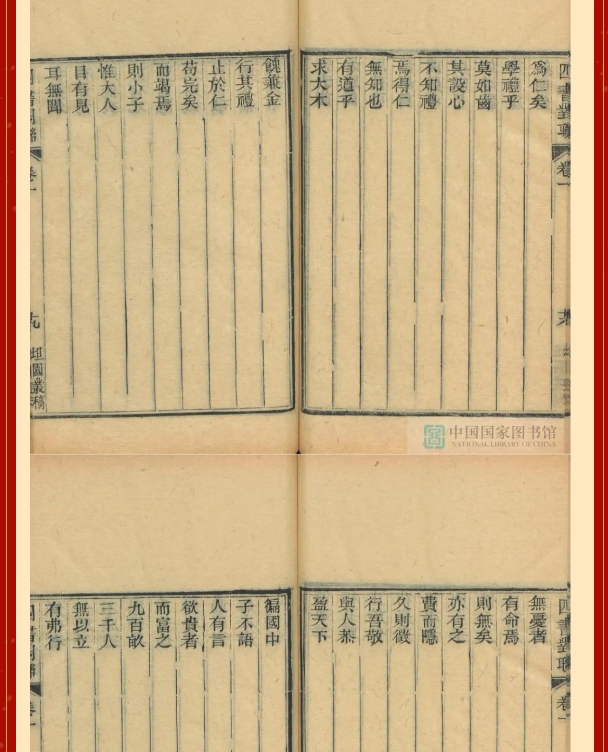 四書對聯 卷一
爲仁矣
學禮乎
莫如齒
其設心
不知禮
焉得仁
無知也
有道乎
求大木
餽兼金
行其禮
止於仁
苟完矣
而竭焉
則小子
惟大人
目有見
耳無聞
四書對聯 卷一 坦園叢稿
中国国家图书馆
NATIONAL LIBRARY OF CHINA
四書對聯 卷一
無憂者
有命焉
則無矣
亦有之
費而隱
久則徵
行吾敬
與人恭
盈天下
徧國中
子不語
人有言
欲貴者
而富之
九百畝
三千人
無以立
有弗行
四書對聯 卷一